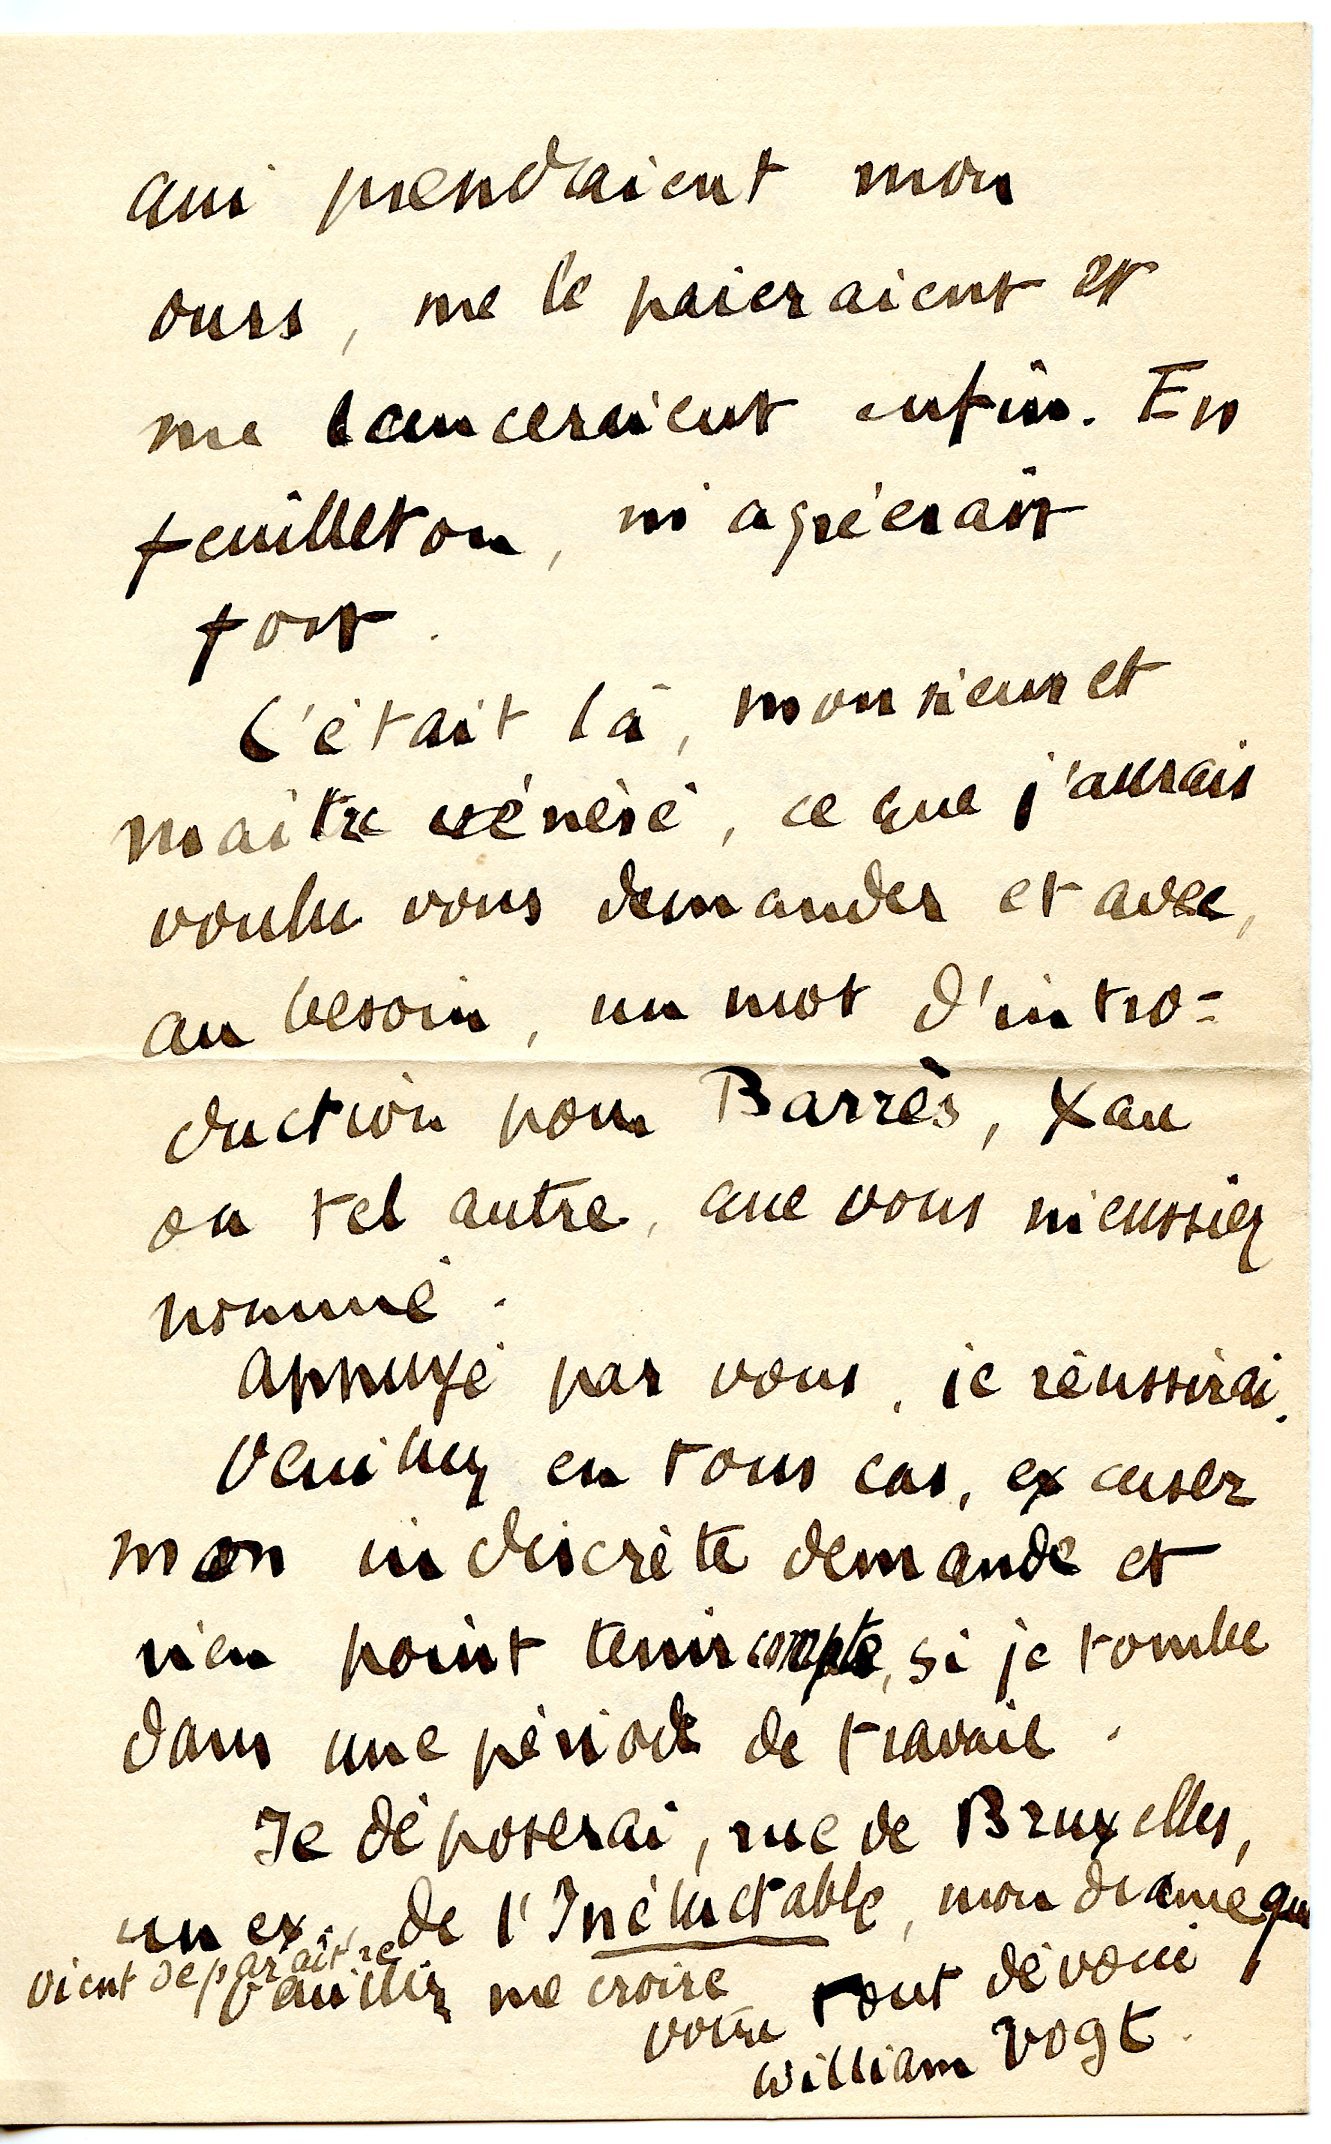 qui prendraient mon
ours, me le paieraient et
me lanceraient enfin. En
feuilleton, m'agréerait
fort.
C'était là, monsieur et
maître vénéré, ce que j'aurais
voulu vous demander et avec,
au besoin, un mot d'intro=
duction pour Barrès, Xau
ou tel autre, que vous m'eussiez
nommé.
Appuyé par vous, je réussirai.
Veuillez en tous cas, excuser
mon indiscrète demande et
n'en point tenir compte, si je tombe
dans une période de travail.
Je déposerai, rue de Bruxelles,
un ex. de l'Inéluctable, mon drame qui
vient de paraître
Veuillez me croire
votre tout dévoué
William Vogt.